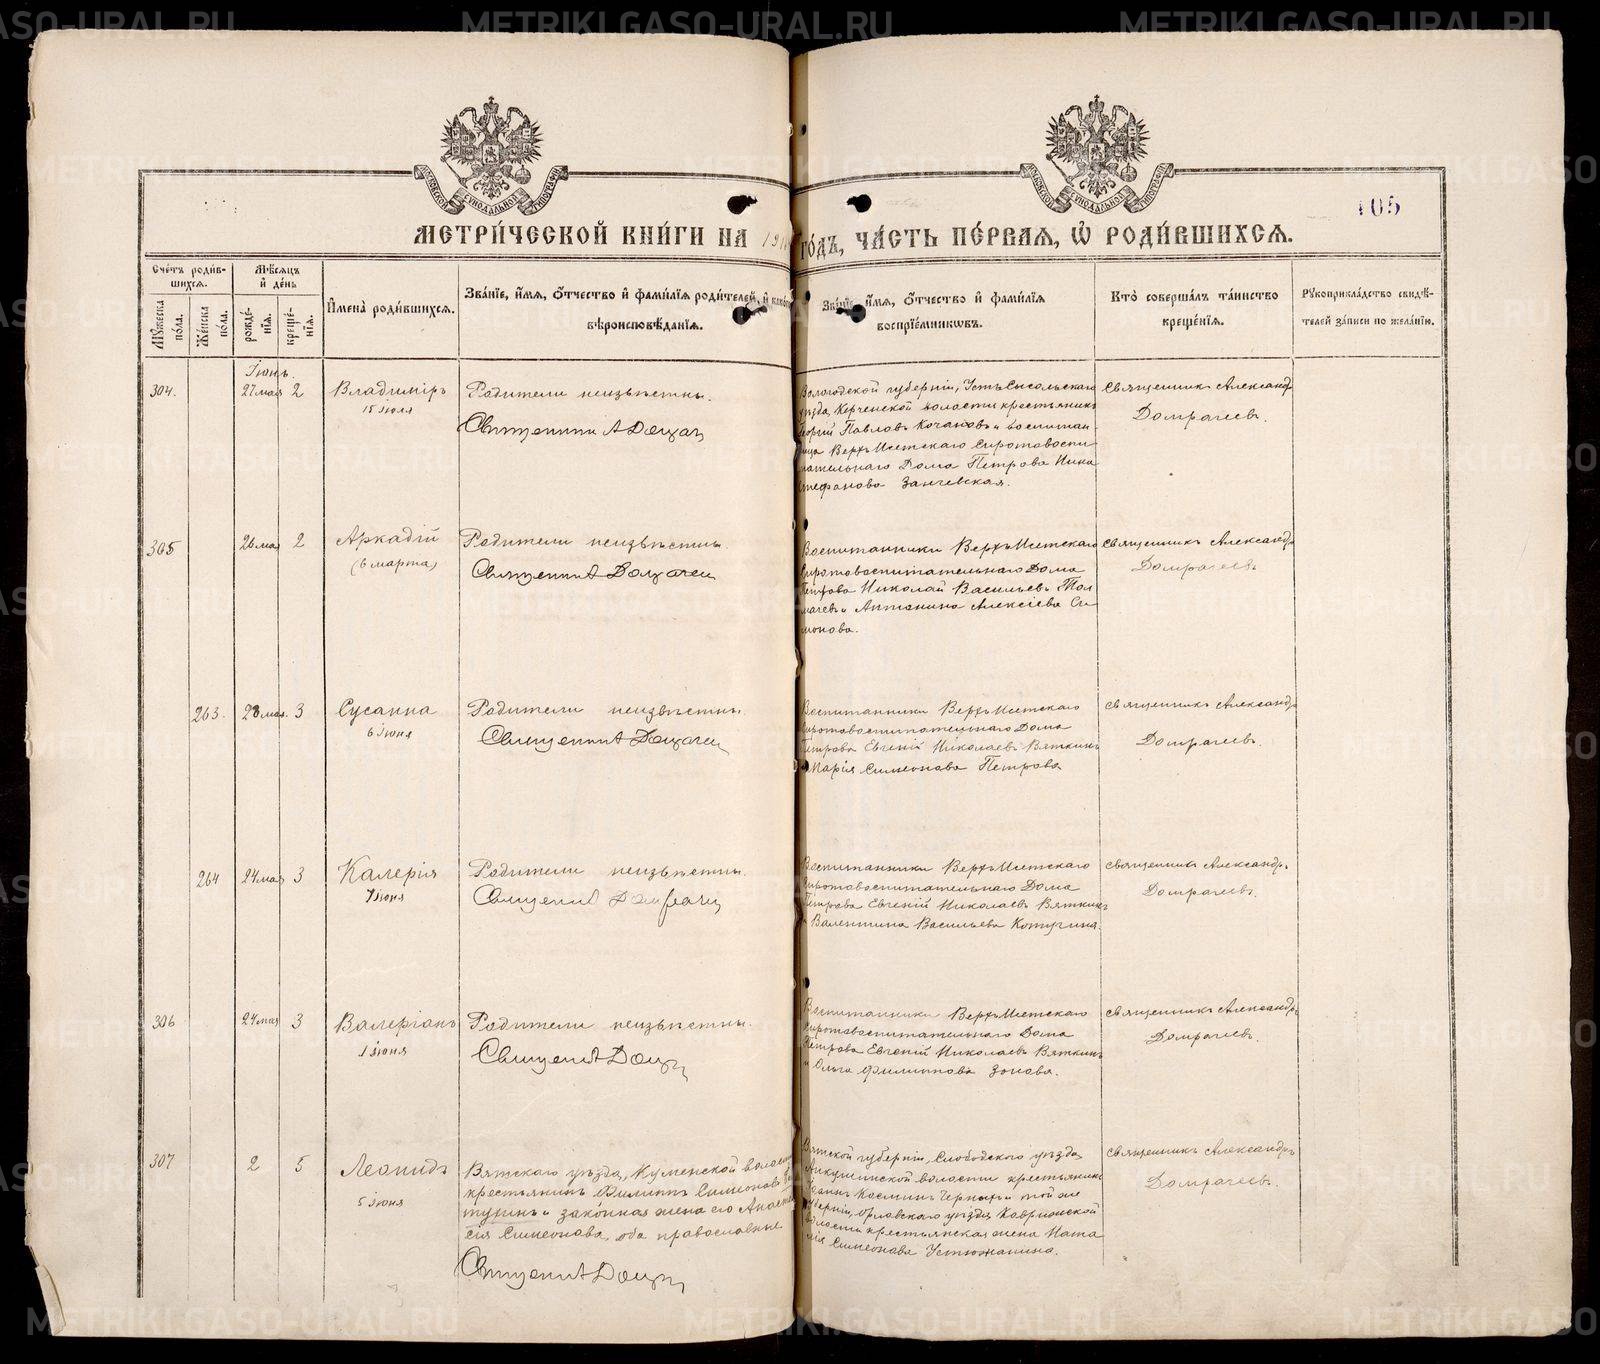 METRIKI.GASO-URAL.RU
105
МЕТРИ́ЧЕСКОЙ КНИ́ГИ НА 191
ГО́ДЪ, ЧА́СТЬ ПЕ́РВАЯ, Ѽ РОДИ́ВШИХСЯ.
Сче́тъ роди́в-
шихся.
Му́жеска по́ла.
Же́нска по́ла.
Мѣ́сяцъ и҆ де́нь
рожде́нїя.
креще́нїя.
И҆мена̀ роди́вшихся.
Зва́нїе, и҆́мя, ѻ҆́тчество и҆ фами́лїя роди́телей, и҆
вѣроисповѣ́данїя.
Зва́нїе, и҆́мя, ѻ҆́тчество и҆ фами́лїя
воспрїе́мниковъ.
Кто̀ соверша́лъ та́инство
креще́нїя.
Рꙋкоприкла́дство свидѣ́-
телей за́писи по жела́нїю.
Іюнь.
304. 27 мая 2 Владиміръ
15 іюля
Родители неизвѣстны.
Священникъ
Вологодской губерніи, Усть Сысольскаго
уѣзда, Керченской волости крестьянинъ
Георгій Павловъ Качановъ и воспитан
ница Верхъ Исетскаго Сиротовоспи
тательнаго Дома Петрова Нина
Стефанова Занчевская.
Священникъ Александръ
Домрачевъ.
305 26 мая 2 Аркадій
(6 марта)
Родители неизвѣстны.
Священникъ
Воспитанники Верхъ Исетскаго
Сиротовоспитательнаго Дома
Петрова Николай Васильевъ Тол
мачевъ и Антонина Алексіева Си
монова.
Священникъ Александръ
Домрачевъ
263. 28 мая. 3 Сусанна
6 іюня
Родители неизвѣстны.
Священникъ
Воспитанники Верхъ Исетскаго
Сиротовоспитательнаго Дома
Петрова Евгеній Николаевъ Вяткинъ
и Марія Симеонова Петрова
Священникъ Александръ
Домрачевъ.
264 24 мая 3 Калерія
7 іюня
Родители неизвѣстны.
Священникъ
Воспитанники Верхъ Исетскаго
Сиротовоспитательнаго Дома
Петрова Евгеній Николаевъ Вяткинъ
и Валентина Васильева Котугина.
Священникъ Александръ
Домрачевъ.
306 24 мая 3 Валеріанъ
1 іюня
Родители неизвѣстны.
Священникъ
Воспитанники Верхъ Исетскаго
Сиротовоспитательнаго Дома
Петрова Евгеній Николаевъ Вяткинъ
и Ольга Филиппова Зонова.
Священникъ Александръ
Домрачевъ.
307 2 5 Леонидъ
5 іюня
Вятскаго уѣзда, Куменской волости
крестьянинъ Филиппъ Симеоновъ
и законная жена его Анаста
сія Симеонова, оба православные
Священникъ
Вятской губерніи, Слободского уѣзда
волости крестьянинъ
Іоаннъ Космин и той же
губерніи, Орловскаго уѣзда,
волости крестьянская жена Ната
лія Симеонова Устюжанина.
Священникъ Александръ
Домрачевъ.